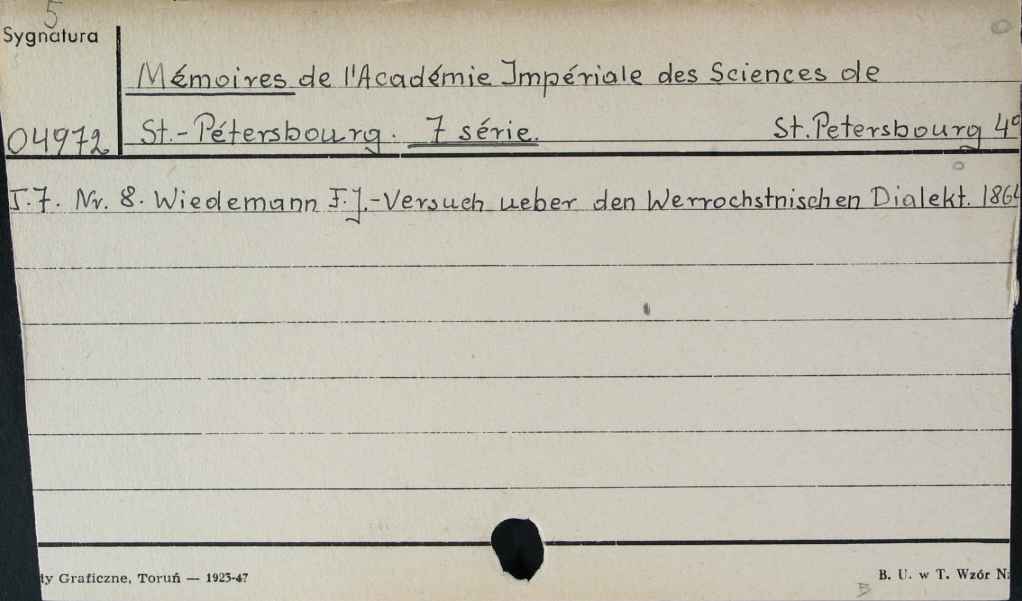 5
Sygnatura
Mémoires de l'Académie Impériale des Sciences de
04972 St.-Pétersbourg. 7 série. St. Petersbourg 4°
T.7. Nr. 8. Wiedemann F.J.-Versuch ueber den Werrochstnischen Dialekt. 1864
ty Graficzne, Toruń — 1925-47
B. U. w T. Wzór N
5